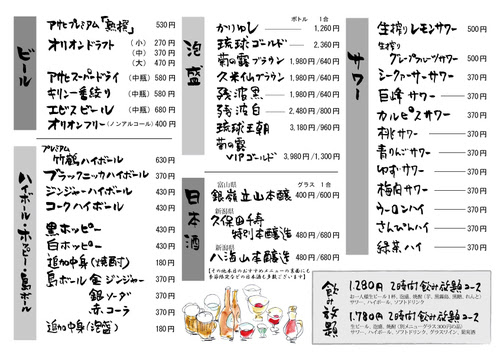 ビール
アサヒプレミアム「熟撰」 530円
オリオンドラフト （小） 270円
（中） 370円
（大） 470円
アサヒスーパードライ （中瓶） 580円
キリン一番絞り （中瓶） 580円
エビスビール （中瓶） 680円
オリオンフリー（ノンアルコール） 400円
ハイボール・ホッピー・島ボール
プレミアム
竹鶴ハイボール 630円
ブラックニッカハイボール 370円
ジンジャーハイボール 430円
コークハイボール 430円
黒ホッピー 430円
白ホッピー 430円
追加中身（焼酎） 180円
島ボール 金 ジンジャー 380円
銀 ソーダ 380円
赤 コーラ 380円
追加中身（泡盛） 180円
泡盛
ボトル 1合
かりゆし 1,260円
琉球ゴールド 2,360円
菊の露ブラウン 1,980円/640円
久米仙ブラウン 1,980円/640円
残波黒 1,980円/640円
残波白 2,480円/800円
琉球王朝 3,180円/960円
菊の露
VIPゴールド 3,980円/1,300円
日本酒
グラス 1合
富山県
銀嶺立山本醸 400円/600円
新潟県
久保田千寿
特別本醸造 480円/680円
新潟県
八海山本醸造 480円/680円
【その他本日のおすすめメニューの裏面にも
季節限定などの日本酒も多数ございます】
サワー
生搾りレモンサワー 500円
生搾り
グレープフルーツサワー 500円
シークァーサーサワー 370円
巨峰サワー 370円
カルピスサワー 370円
桃サワー 370円
青りんごサワー 370円
ゆずサワー 370円
梅肉サワー 370円
ウーロンハイ 370円
さんぴんハイ 370円
緑茶ハイ 370円
飲み放題
1,280円 2時間飲み放題コース
お一人様生ビール1杯、泡盛、焼酎
サワー、ハイボール、ソフトドリンク
1,780円 2時間飲み放題コース
生ビール、泡盛、焼酎（別メニューグラス300円の品）
サワー、ハイボール、ソフトドリンク、グラスワイン、果実酒